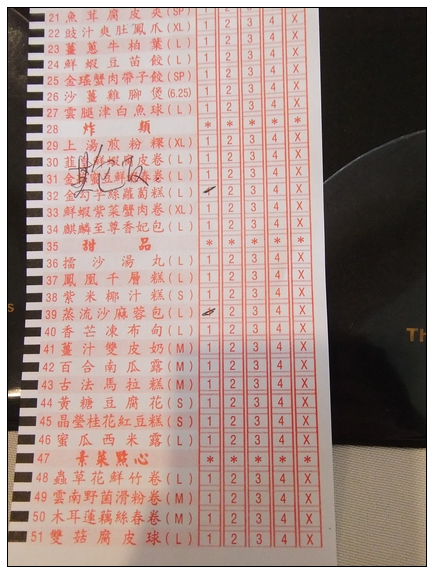 21 魚茸腐皮夾(SP) 1 2 3 4 X
22 豉汁爽肚鳳爪(XL) 1 2 3 4 X
23 薑蔥牛柏葉(L) 1 2 3 4 X
24 鮮蝦豆苗餃(L) 1 2 3 4 X
25 金瑤蟹肉帶子餃(SP) 1 2 3 4 X
26 沙薑雞腳煲(6.25) 1 2 3 4 X
27 雲腿津白魚球(L) 1 2 3 4 X
28 炸類 * * * * *
29 上湯煎粉粿(XL) 1 2 3 4 X
30 鮮蝦腐皮卷(L) 1 2 3 4 X
31 鮮春卷(L) 1 2 3 4 X
32 金 子絲蘿蔔糕(L) 1 2 3 4 X
33 鮮蝦紫菜蟹肉卷(XL) 1 2 3 4 X
34 麒麟至尊香妃包(L) 1 2 3 4 X
35 甜品 * * * * *
36 擂沙湯丸(L) 1 2 3 4 X
37 鳳凰千層糕(L) 1 2 3 4 X
38 紫米椰汁糕(S) 1 2 3 4 X
39 蒸流沙麻蓉包(L) 1 2 3 4 X
40 香芒凍布甸(L) 1 2 3 4 X
41 薑汁雙皮奶(M) 1 2 3 4 X
42 百合南瓜露(M) 1 2 3 4 X
43 古法馬拉糕(M) 1 2 3 4 X
44 黃糖豆腐花(S) 1 2 3 4 X
45 晶瑩桂花紅豆糕(S) 1 2 3 4 X
46 蜜瓜西米露(L) 1 2 3 4 X
47 素菜點心 * * * * *
48 蟲草花鮮竹卷(L) 1 2 3 4 X
49 雲南野菌滑粉卷(M) 1 2 3 4 X
50 木耳蓮藕絲春卷(M) 1 2 3 4 X
51 雙菇腐皮球(L) 1 2 3 4 X
s
Th